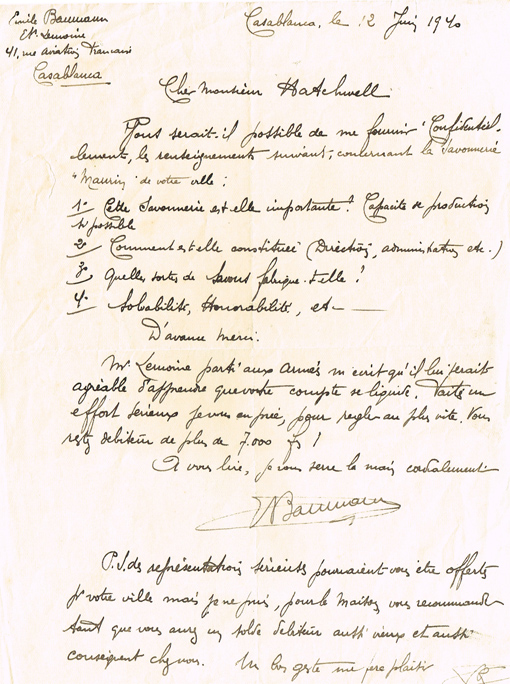 Emile Baumann
Ets Lemoine
41, rue Aviation Française
Casablanca
Casablanca, le 12 Juin 1940
Cher Monsieur Hatchwell
Vous serait-il possible de me fournir Confidentiel-
lement, les renseignements suivant, concernant la Savonnerie
"Maurin" de votre ville :
1° Cette Savonnerie est elle importante ? Capacité de production
si possible
2° Comment est elle constituée (Direction, administration etc.)
3° Quelles sortes de Savons fabrique-t-elle ?
4° Solvabilité, Honorabilité, etc
D'avance merci.
Mr Lemoine parti aux Armées m'ecrit qu'il lui serait
agréable d'apprendre que votre compte se liquide. Faites un
effort sérieux je vous en prie, pour regler au plus vite. Vous
restez debiteur de plus de 7.000 frs !
A vous lire, je vous serre la main cordialement
EBaumann
P.S. des représentations sérieuses pourraient vous être offerts
pr votre ville mais je ne puis, pour le Maison vous recommander
tant que vous aurez un solde debiteur aussi vieux et aussi
conséquent chez nous. Un bon geste me fera plaisir